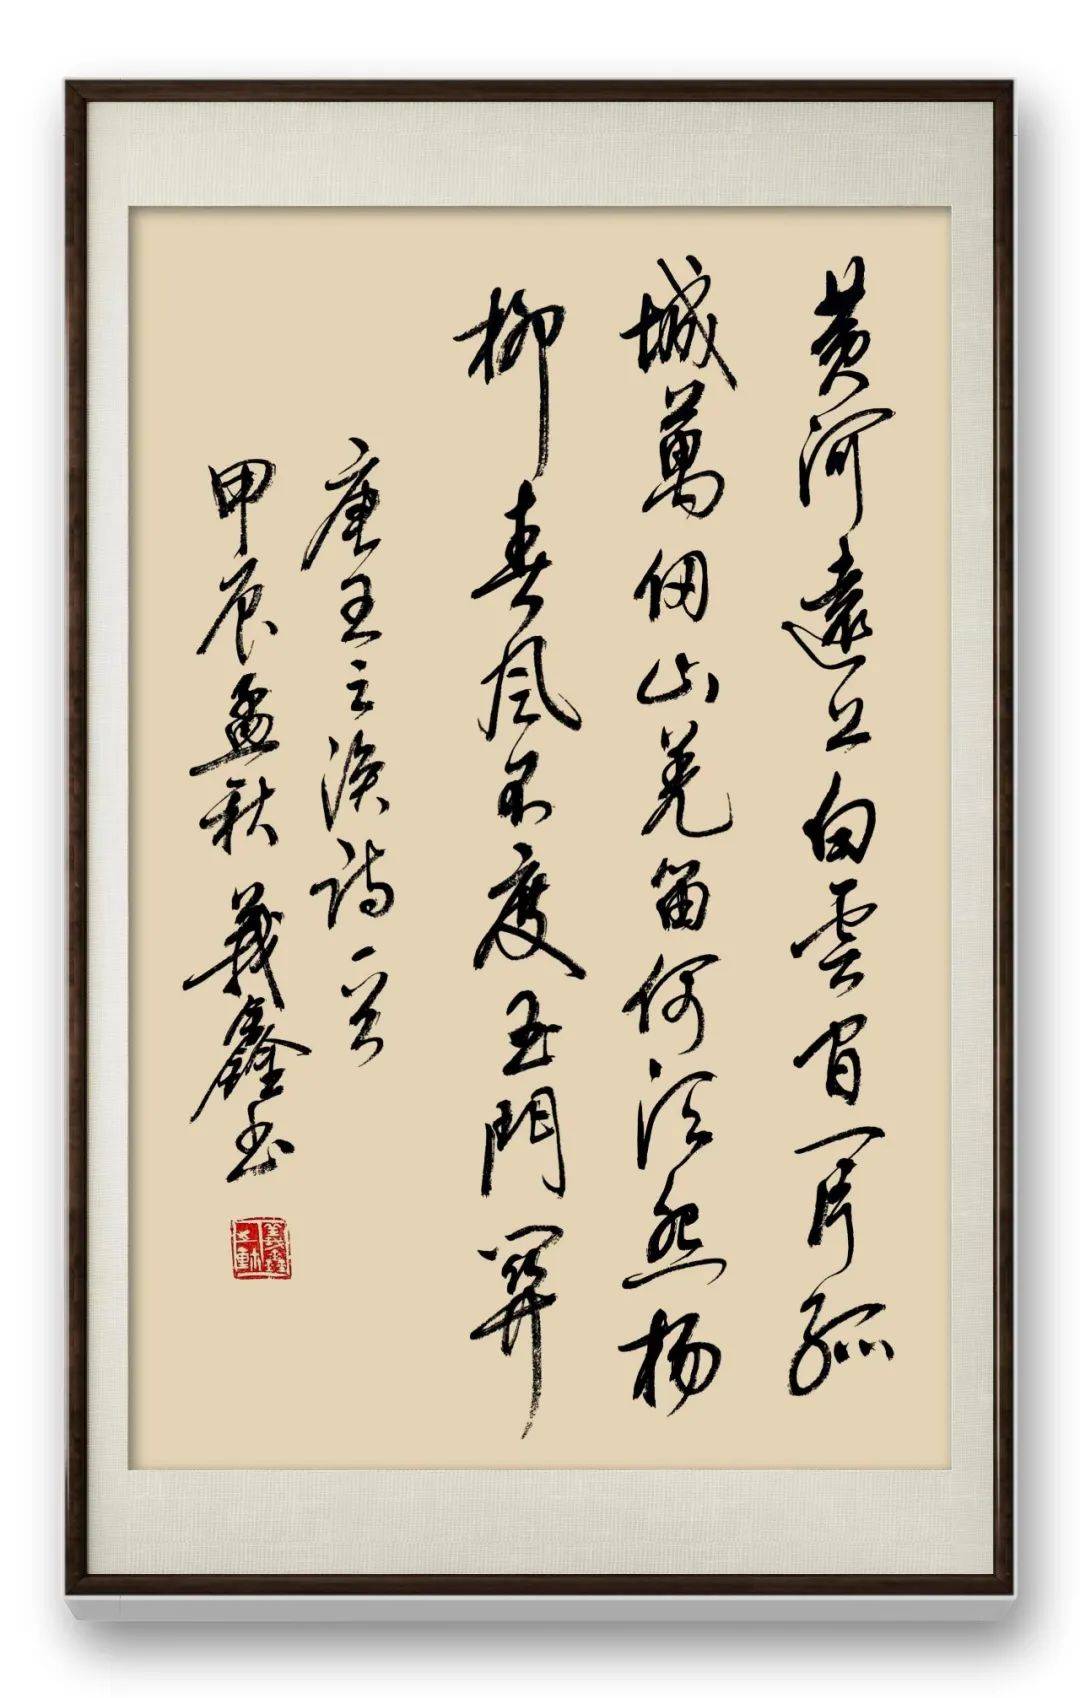 黃河遠上白雲間一片孤
城萬仞山羌笛何須怨楊
柳春風不度玉門關
唐王之渙詩一首
甲辰孟秋 義鑫書
義鑫